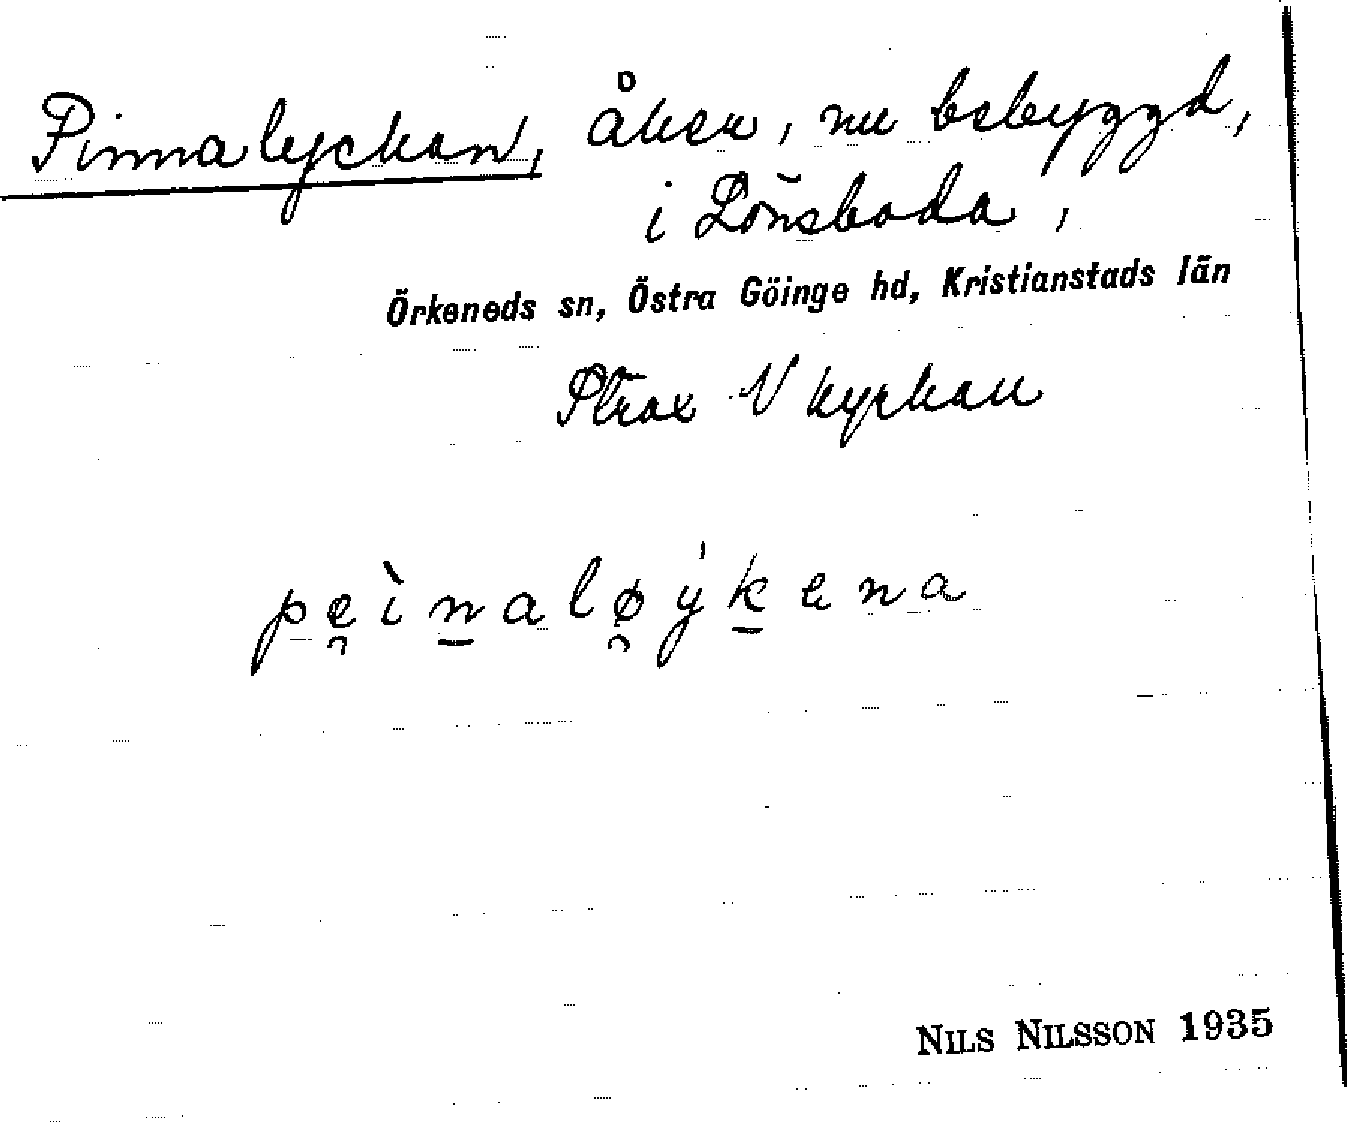 Pinnalyckan, åker, nu bebyggd,
i Lönsboda,
Örkeneds sn, Östra Göinge hd, Kristianstads län
Strax V kyrkan
pe̯ìn̠alø̯ýk̠ena
NILS NILSSON 1935